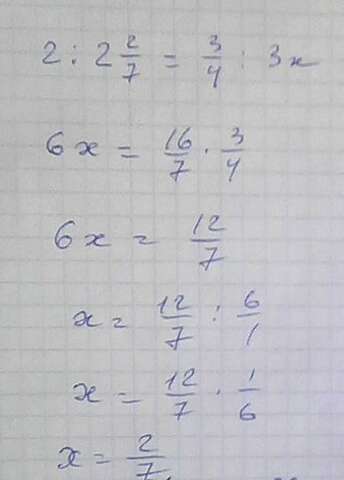 2 : 2 2/7 = 3/4 : 3x
6x = 16/7 · 3/4
6x = 12/7
x = 12/7 : 6/1
x = 12/7 · 1/6
x = 2/7